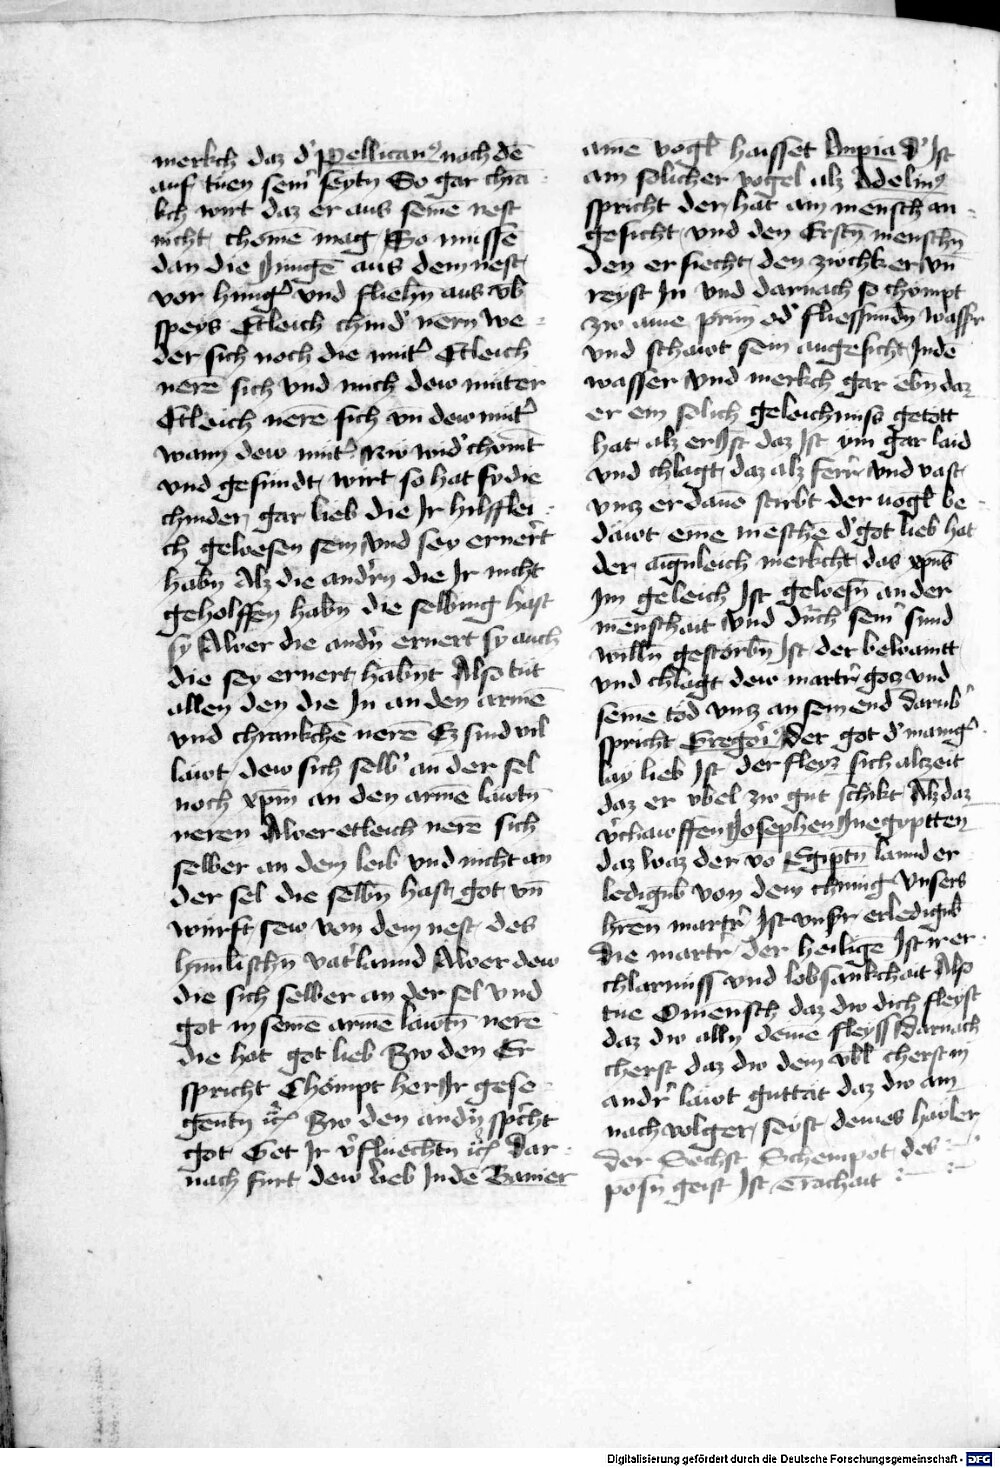 merkch daz d' Pellican9 noch dē
auf tüen sem' seytn So gar chra
kch wirt daz er aus semē nest
nicht chomē mag So müssē
dan die Jungē aus dem nest
vor hung' vnd fliehn aus vb
speys Etleich chind' nern we
der sich noch die mut' Etleich
nerē sich vnd nuch dew muter
Etleich nerē sich vn dew mut'
wann dew mut' Nw wid' chomt
vnd gesundt wirt so hat sy die
chinder gar lieb die Jr hilfflei
ch gewesen sein vnd sey ernert
habn Alz die andrn die Jr nicht
geholffen habn die selbing hast
sy Awer die andn ernert sy auch
die sey ernert habnt Also tut
allen den die In an den armē
vnd chrankchē nerē Ez sind vil
läwt dew sich selb' an der sel
noch xpm an den armē läwtn
neren Awer etleich nerē sich
selber an dem leib vnd nicht an
der sel die selbn hast got vn
würft sew vom dem nest des
hymlischn vat'lannd Awer dew
die sich selber an der sel vnd
got in semē armē läwtn nerē
die hat got lieb Zw den Er
spricht Chömpt her Jr gese
gentn Zw den andn spcht
got Get Jr v'fluechtn dar
nach furt dew lieb In dē Banier
amē vogl haisset Ampia d' Jst
am solicher vogel alz Adelin9
spricht der hat am mensch an
gesicht vnd den Erstn menschn
den er siecht den zwchk er vn
reyst In vnd darnach so chömpt
zw ame prun od' fliessundn wasser
vnd schawt sem angesicht In dē
wasser vnd merkch gar ebn daz
er em solich geleichnuss getött
hat alz er Jst daz Jst im gar laid
vnd chlagt daz alz ferr vnd vast
vntz er dauō stirbt der uogl be
däwt eine meschē d' got lieb hat
der aignleich merkcht das xpus
Im geleich Jst gewesn an der
menschait vnd durch sem' sund
willn gestorbn Jst der bewaintt
vnd chlagt dew martr gotz vnd
semē töd vntz an sein end darub'
spricht Gregori9 der got d' mang'
lay lieb Jst der fleyz sich alczeit
daz er vbel zw gut schikt Alz daz
v'chawffen Josephen In egyptten
daz waz der vō Egiptn lannd er
ledigub von dem chunig Vnsers
hren martr Jst vnsr erledigub
Die martr der heilige Jst ir er
chlarnuss vnd lobsankchait Also
tue O mensch daz dw dich fleyst
daz dw alln deinē fleyss darnach
cherst daz dw dem vbl cherst in
andr läwt guttät daz dw am
nachvolger seyst deines hayler
der Sechst Schempot des
posn geist Jst Trachait
Digitalisierung gefördert durch die Deutsche Forschungsgemeinschaft - DFG